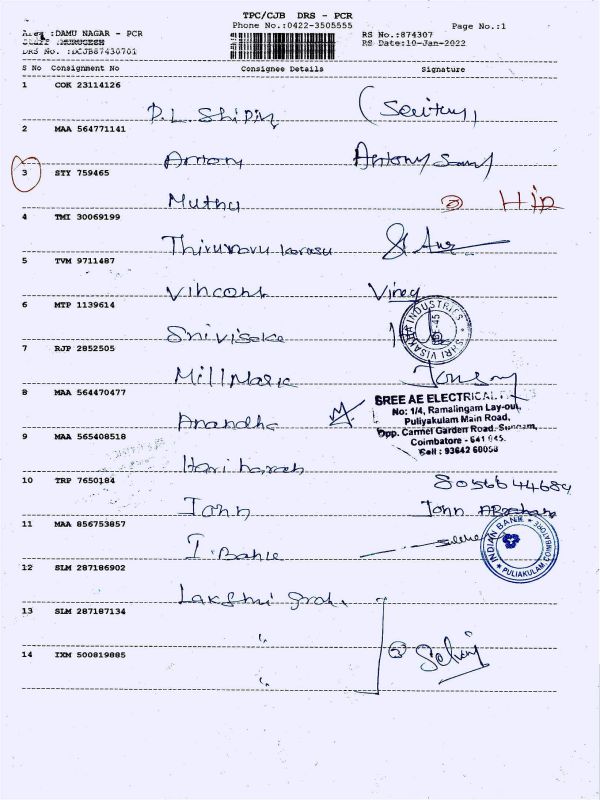 TPC/CJB DRS - PCR
Phone No.:0422-3505555
Page No.:1
Area :DAMU NAGAR - PCR
RS No.:874307
STAFF :MURUGESH
RS Date:10-Jan-2022
DRS No. :DCJB87430701
S No Consignment No Consignee Details Signature
1 COK 23114126
P.L. Shiping
2 MAA 564771141
Antony Antony Samy
3 STY 759465
Muthu
4 TMI 30069199
Thirunavukarasu
5 TVM 9711487
Vincent
6 MTP 1139614
Srivisaka
SHRI VISAKHA INDUSTRIES
7 RJP 2852505
Millmark
8 MAA 564470477
Anandha
SREE AE ELECTRICAL
No: 1/4, Ramalingam Lay-out,
Puliyakulam Main Road,
Opp. Carmel Garden Road, Sungam,
Coimbatore - 641 045.
Cell : 93642 60058
9 MAA 565408518
Hariharan
10 TRP 7650184
John John Abraham
11 MAA 856753857
I. Bank
INDIAN BANK
PULIAKULAM COIMBATORE
12 SLM 287186902
Lakshmi
13 SLM 287187134
"
14 IXM 500819885
"